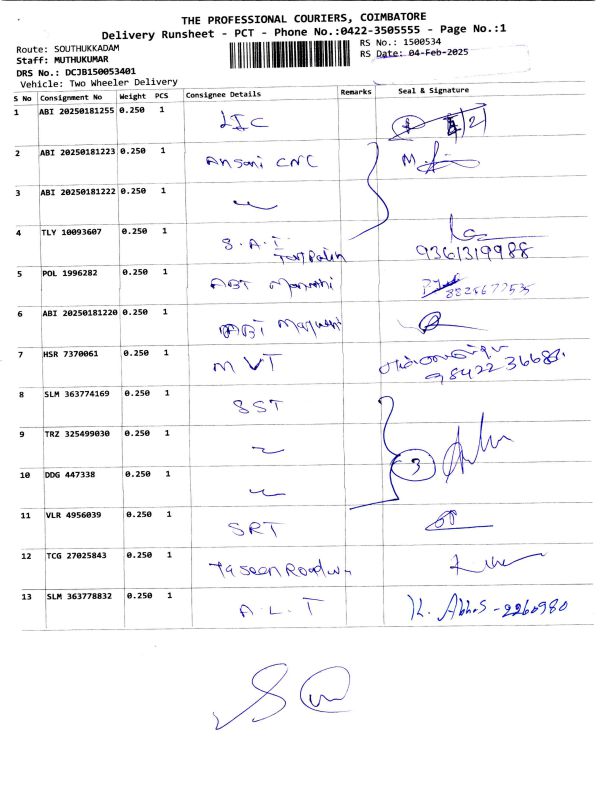 THE PROFESSIONAL COURIERS, COIMBATORE
Delivery Runsheet - PCT - Phone No.:0422-3505555 - Page No.:1
Route: SOUTHUKKADAM
RS No.: 1500534
Staff: MUTHUKUMAR
RS Date: 04-Feb-2025
DRS No.: DCJB150053401
Vehicle: Two Wheeler Delivery
S No Consignment No Weight PCS Consignee Details Remarks Seal & Signature
1 ABI 20250181255 0.250 1 LIC
2 ABI 20250181223 0.250 1 Ansani CNC
3 ABI 20250181222 0.250 1
4 TLY 10093607 0.250 1 S.A.I
9361319988
5 POL 1996282 0.250 1 ABT
8825677535
6 ABI 20250181220 0.250 1 ABT
7 HSR 7370061 0.250 1 MVT
98422 36683.
8 SLM 363774169 0.250 1 SST
9 TRZ 325499030 0.250 1
3
10 DDG 447338 0.250 1
11 VLR 4956039 0.250 1 SRT
12 TCG 27025843 0.250 1
13 SLM 363778832 0.250 1 A.L.T K. Abbas - 2260980